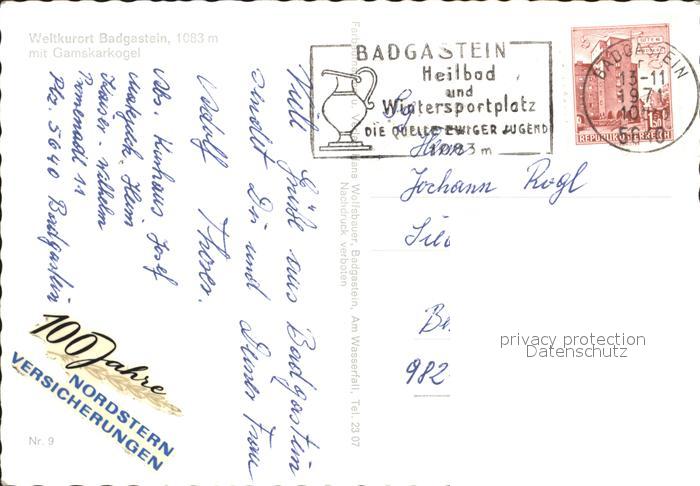 Weltkurort Badgastein, 1083 m
mit Gamskarkogel
BADGASTEIN
Heilbad
und
Wintersportplatz
DIE QUELLE EWIGER JUGEND
1083 m
BADGASTEIN
13-11
1971
5640
REPUBLIK ÖSTERREICH
Viele Grüße aus Badgastein
sendet Dir und Deiner Frau
Adolf
Abs. Kurhaus Josef
Heim
Kaiser-Wilhelm
Promenade 11
Plz. 5640 Badgastein
Wolfsbauer, Badgastein, Am Wasserfall, Tel. 23 07
Nachdruck verboten
Herrn
Johann Rogl
982
100 Jahre
NORDSTERN
VERSICHERUNGEN
Nr. 9
privacy protection
Datenschutz